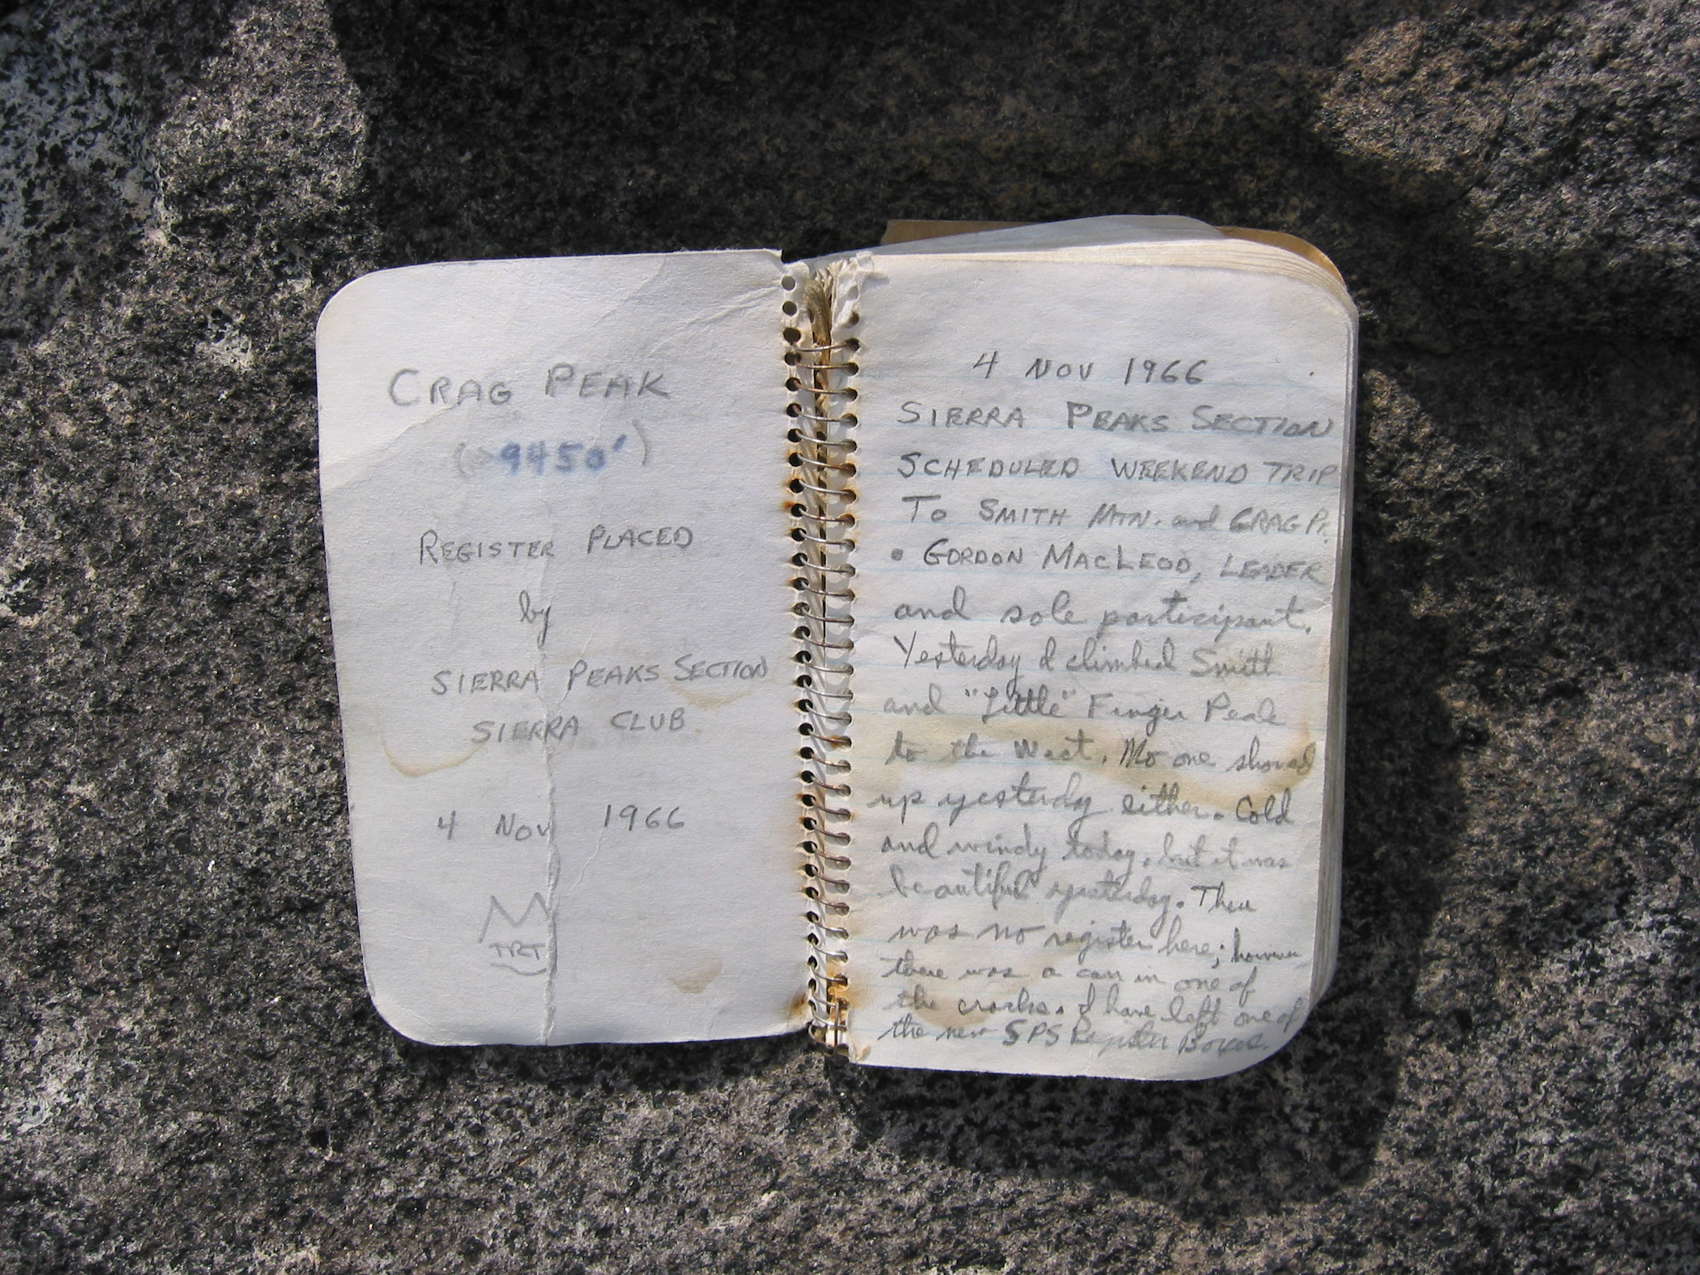 CRAG PEAK
(>9450')
REGISTER PLACED
by
SIERRA PEAKS SECTION
SIERRA CLUB
4 NOV 1966
4 NOV 1966
SIERRA PEAKS SECTION
SCHEDULED WEEKEND TRIP
TO SMITH MTN. and CRAG PK.
• GORDON MACLEOD, LEADER
and sole participant.
Yesterday I climbed Smith
and "Little" Finger Peak
to the West. No one showed
up yesterday either. Cold
and windy today, but it was
beautiful yesterday. There
was no register here; however
there was a can in one of
the cracks. I have left one of
the new SPS Register Boxes.